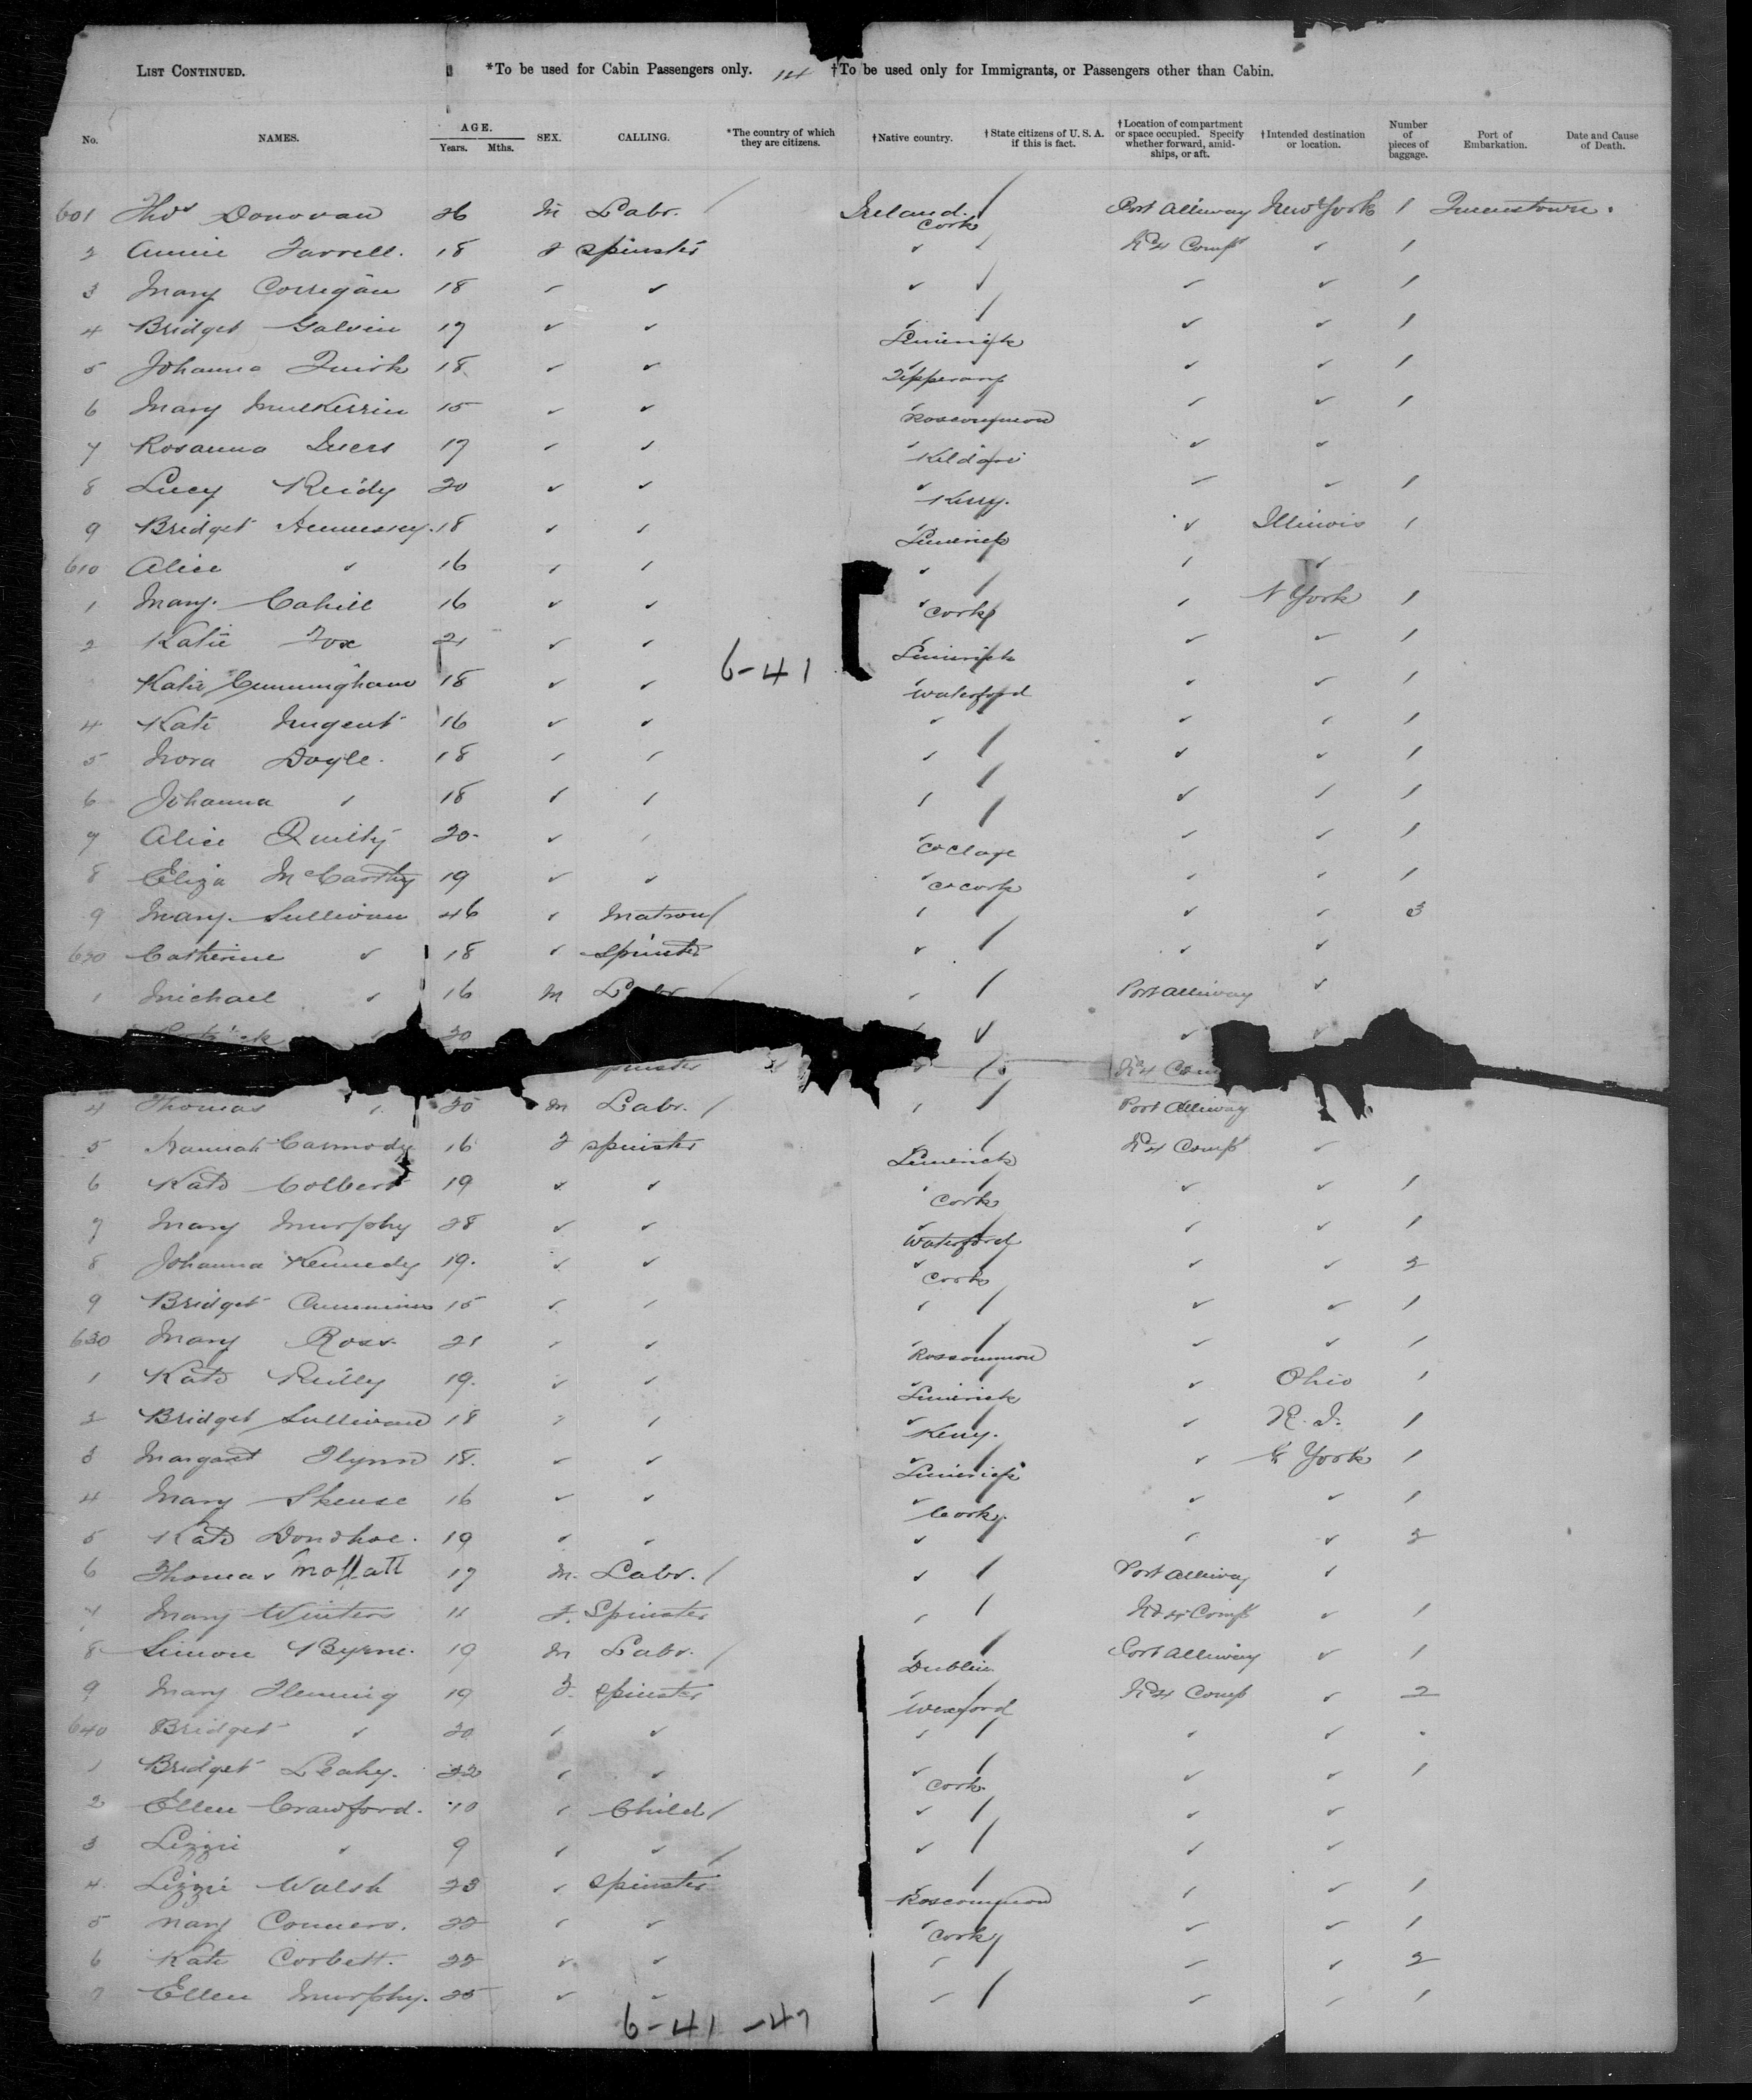 LIST CONTINUED. *To be used for Cabin Passengers only. 14 †To be used only for Immigrants, or Passengers other than Cabin.
No. NAMES. AGE. Years. Mths. SEX. CALLING. *The country of which they are citizens. †Native country. †State citizens of U. S. A. if this is fact. †Location of compartment or space occupied. Specify whether forward, amidships, or aft. †Intended destination or location. Number of pieces of baggage. Port of Embarkation. Date and Cause of Death.
601 Thos Donovan 26 M Labr. / Ireland. Cork / Port Alleway New York 1 Queenstown.
2 Annie Farrell. 18 F Spinster ✓ ✓ No 4 Compt ✓ 1
3 Mary Corrigan 18 ✓ ✓ ✓ ✓ ✓ ✓ 1
4 Bridget Galvin 17 ✓ ✓ ✓ Limerick / ✓ ✓ 1
5 Johanna Quirk 18 ✓ ✓ ✓ Tipperary ✓ ✓ 1
6 Mary Mulkerrin 15 ✓ ✓ ✓ Roscommon ✓ ✓ 1
7 Rosanna 17 ✓ ✓ ✓ Kildare ✓ ✓
8 Lucy Reidy 20 ✓ ✓ ✓ Kerry. ✓ ✓ 1
9 Bridget Hennessey. 18 ✓ ✓ ✓ Limerick ✓ Illinois 1
610 Alice ✓ 16 ✓ ✓ ✓ / ✓ ✓
1 Mary. Cahill 16 ✓ ✓ ✓ Cork ✓ N York 1
2 Katie Fox 21 ✓ ✓ Limerick ✓ ✓ 1
6-41
Katie Cunningham 18 ✓ ✓ ✓ Waterford ✓ ✓ 1
4 Kate Nugent 16 ✓ ✓ ✓ ✓ ✓ 1
5 Nora Doyle. 18 ✓ ✓ ✓ / ✓ ✓ 1
6 Johanna ✓ 18 ✓ ✓ ✓ / ✓ ✓ 1
7 Alice Quilty 20 ✓ ✓ ✓ Co Clare / ✓ ✓ 1
8 Eliza McCarthy 19 ✓ ✓ ✓ Co Cork ✓ ✓ 1
9 Mary. Sullivan 46 ✓ Matron / ✓ / ✓ ✓ 3
620 Catherine ✓ 18 ✓ Spinster ✓ / ✓ ✓
1 Michael ✓ 16 M Labr / ✓ / Port Alleway ✓
20 ✓ ✓ ✓
No 4
4 Thomas ✓ 20 M Labr. / ✓ / Port Alleway
5 Hannah Carmody 16 F Spinster Limerick / No 4 Compt ✓
6 Kate Colbert 19 ✓ ✓ ✓ Cork / ✓ ✓ 1
7 Mary Murphy 28 ✓ ✓ ✓ Waterford / ✓ ✓ 1
8 Johanna Kennedy 19. ✓ ✓ ✓ Cork / ✓ ✓ 2
9 Bridget Cummins 15 ✓ ✓ ✓ / ✓ ✓ 1
630 Mary Ross 21 ✓ ✓ ✓ Roscommon / ✓ ✓ 1
1 Kate Reilly 19. ✓ ✓ ✓ Limerick / ✓ Ohio 1
2 Bridget Sullivan 18 ✓ ✓ ✓ Kerry. / ✓ R. I. 1
3 Margaret Flynn 18. ✓ ✓ ✓ Limerick / ✓ N York 1
4 Mary Skeuse 16 ✓ ✓ ✓ Cork. / ✓ ✓ 1
5 Kate Donohoe. 19 ✓ ✓ ✓ / ✓ ✓ 2
6 Thomas Moffatt 17 M. Labr. / ✓ / Port Alleway ✓
7 Mary Winters 11 F. Spinster ✓ / No 4 Compt ✓ 1
8 Simon Byrne. 19 M Labr. / Dublin / Port Alleway ✓ 1
9 Mary Fleming 19 F. Spinster Wexford / No 4 Comp ✓ 2
640 Bridget ✓ 20 ✓ ✓ ✓ / ✓ ✓
1 Bridget Leahy. 22 ✓ ✓ ✓ Cork. / ✓ ✓ 1
2 Ellen Crawford. 10 ✓ Child / ✓ / ✓ ✓
3 Lizzie ✓ 9 ✓ ✓ / ✓ / ✓ ✓
4. Lizzie Walsh 23 ✓ Spinster ✓ Roscommon / ✓ ✓ 1
5 Mary Conners. 22 ✓ ✓ ✓ Cork / ✓ ✓ 1
6 Kate Corbett. 22 ✓ ✓ ✓ ✓ ✓ 2
7 Ellen Murphy. 25 ✓ ✓ ✓ / ✓ ✓ 1
6-41-47